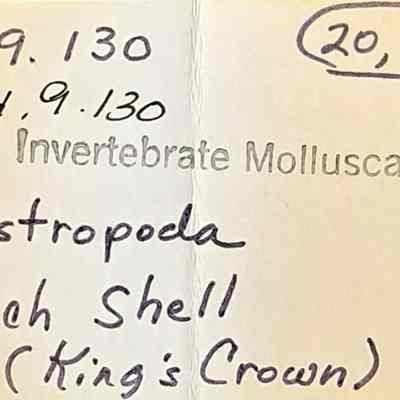 9.130 (20,
1, 9.130
Invertebrate Mollusca
stropoda
ch Shell
(King's Crown)